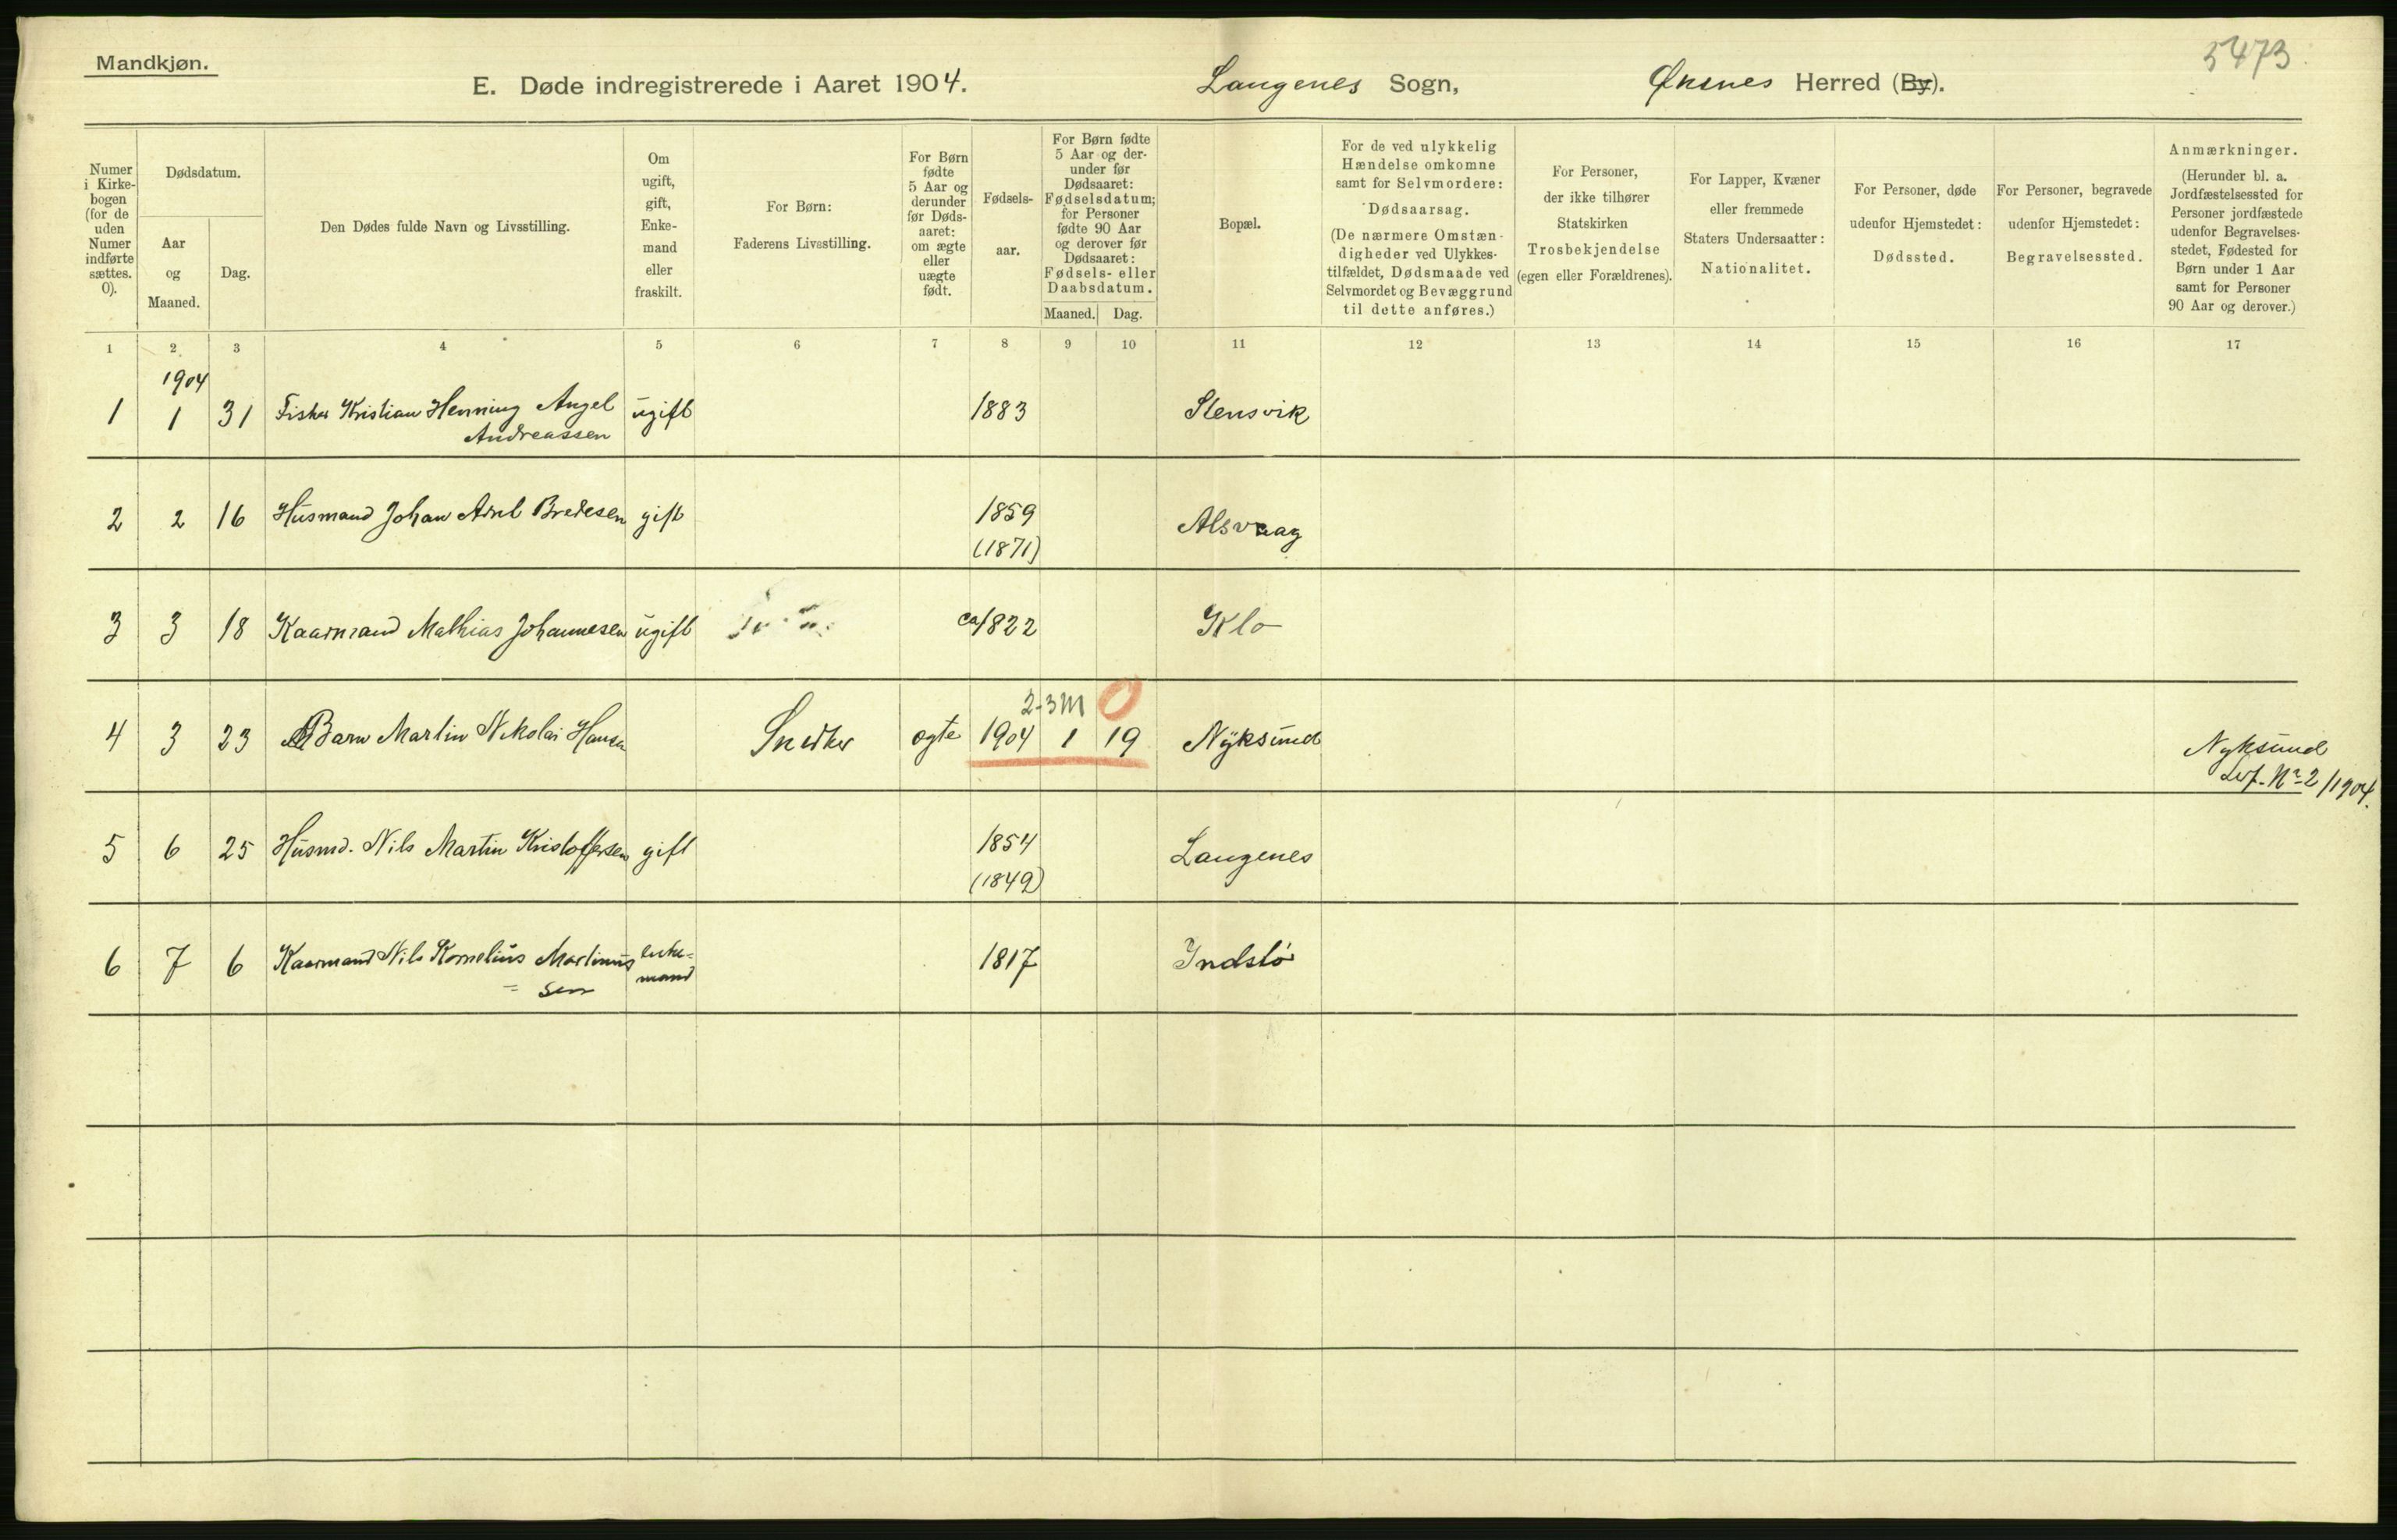 Mandkjøn.
5473
E. Døde indregistrerede i Aaret 1904. Langenes Sogn, Øksnes Herred (By).
Numer i Kirkebogen (for de uden Numer indførte sættes. 0).
Dødsdatum.
Aar og Maaned.
Dag.
Den Dødes fulde Navn og Livsstilling.
Om ugift, gift, Enkemand eller fraskilt.
For Børn: Faderens Livsstilling.
For Børn fødte 5 Aar og derunder før Dødsaaret: om ægte eller uægte født.
Fødselsaar.
For Børn fødte 5 Aar og derunder før Dødsaaret: Fødselsdatum; for Personer fødte 90 Aar og derover før Dødsaaret: Fødsels- eller Daabsdatum.
Maaned. Dag.
Bopæl.
For de ved ulykkelig Hændelse omkomne samt for Selvmordere: Dødsaarsag. (De nærmere Omstændigheder ved Ulykkestilfældet, Dødsmaade ved Selvmordet og Bevæggrund til dette anføres.)
For Personer, der ikke tilhører Statskirken Trosbekjendelse (egen eller Forældrenes).
For Lapper, Kvæner eller fremmede Staters Undersaatter: Nationalitet.
For Personer, døde udenfor Hjemstedet: Dødssted.
For Personer, begravede udenfor Hjemstedet: Begravelsessted.
Anmærkninger. (Herunder bl. a. Jordfæstelsessted for Personer jordfæstede udenfor Begravelsesstedet, Fødested for Børn under 1 Aar samt for Personer 90 Aar og derover.)
1 2 3 4 5 6 7 8 9 10 11 12 13 14 15 16 17
1904
1 1 31 Fisker Kristian Henning Angel ugift 1883 Stensvik
Andreassen
2 2 16 Husmand Johan Bredesen gift 1859 Alsvaag
(1871)
3 3 18 Kaarmand Mathias Johannesen ugift ca 1822 Klo
2-3 M 0
4 3 23 Barn Martin Nikolai Hansen Snedker ægte 1904 1 19 Nyksund Nyksund
Nr. 2/1904.
5 6 25 Husmd. Nils Martin Kristoffersen gift 1854 Langenes
(1849)
6 7 6 Kaarmand Nils Kornelius Martinus enke-
= sen mand 1817 Indstø